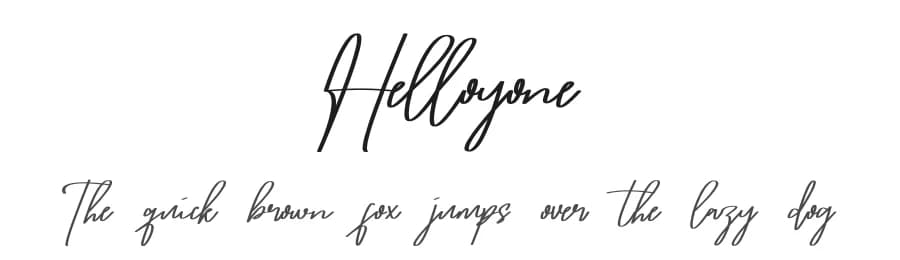 Helloyone
The quick brown fox jumps over the lazy dog